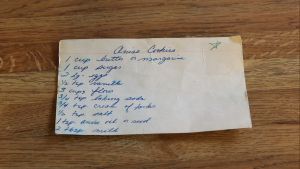 Anise Cookies
1 cup butter or margarine
1 cup sugar
2 lg. eggs
1/2 tsp vanilla
3 cups flour
3/4 tsp baking soda
3/4 tsp cream of tartar
1/2 tsp salt
1 tsp anise oil or seed
2 tbsp milk